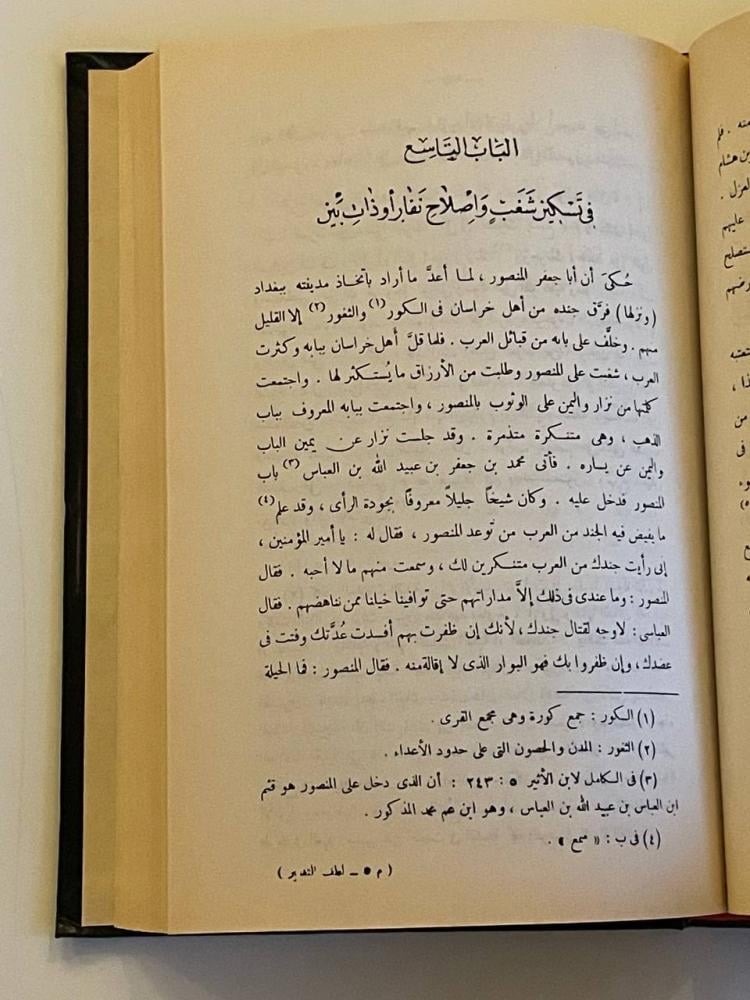 الباب التاسع
في تسكين شغب وإصلاح نفار أو ذات بين
حُكى أن أبا جعفر المنصور ، لما أعدَّ ما أراد باتخاذ مدينته ببغداد
( ونزلها ) فرَّق جنده من أهل خراسان فى الكور (١) والثغور (٢) إلا القليل
منهم . وخلَّف على بابه من قبائل العرب . فلما قلَّ أهل خراسان ببابه وكثرت
العرب ، شغبت على المنصور وطلبت من الأرزاق ما يُستكثر لها . واجتمعت
كلتها من نزار واليمن على الوثوب بالمنصور ، واجتمعت ببابه المعروف بباب
الذهب ، وهى متنكرة متذمرة . وقد جلست نزار عن يمين الباب
واليمن عن يساره . فأتى محمد بن جعفر بن عبيد الله بن العباس (٣) باب
المنصور فدخل عليه . وكان شيخاً جليلاً معروفاً بجودة الرأى ، وقد علم (٤)
ما يفيض فيه الجند من العرب من توعد المنصور ، فقال له : يا أمير المؤمنين ،
إنى رأيت جندك من العرب متنكرين لك ، وسمعت منهم ما لا أحبه . فقال
المنصور : وما عندى فى ذلك إلاَّ مداراتهم حتى توافينا خيلنا ممن نناهضهم . فقال
العباسى : لا وجه لقتال جندك ، لأنك إن ظفرت بهم أفسدت عُدَّتك وفتت فى
عضدك ، وإن ظفروا بك فهو البوار الذى لا إقالة منه . فقال المنصور : فما الحيلة
(١) الكور : جمع كورة وهى مجمع القرى .
(٢) الثغور : المدن والحصون التى على حدود الأعداء .
(٣) فى الكامل لابن الأثير ٥ : ٢٤٣ : أن الذى دخل على المنصور هو قثم
ابن العباس بن عبيد الله بن العباس ، وهو ابن عم محمد المذكور .
(٤) فى ب : « سمع » .
( م ٥ ــ لطف التدبير )
منه . فلم
بن هشام
العزل .
عليهم
من
فى